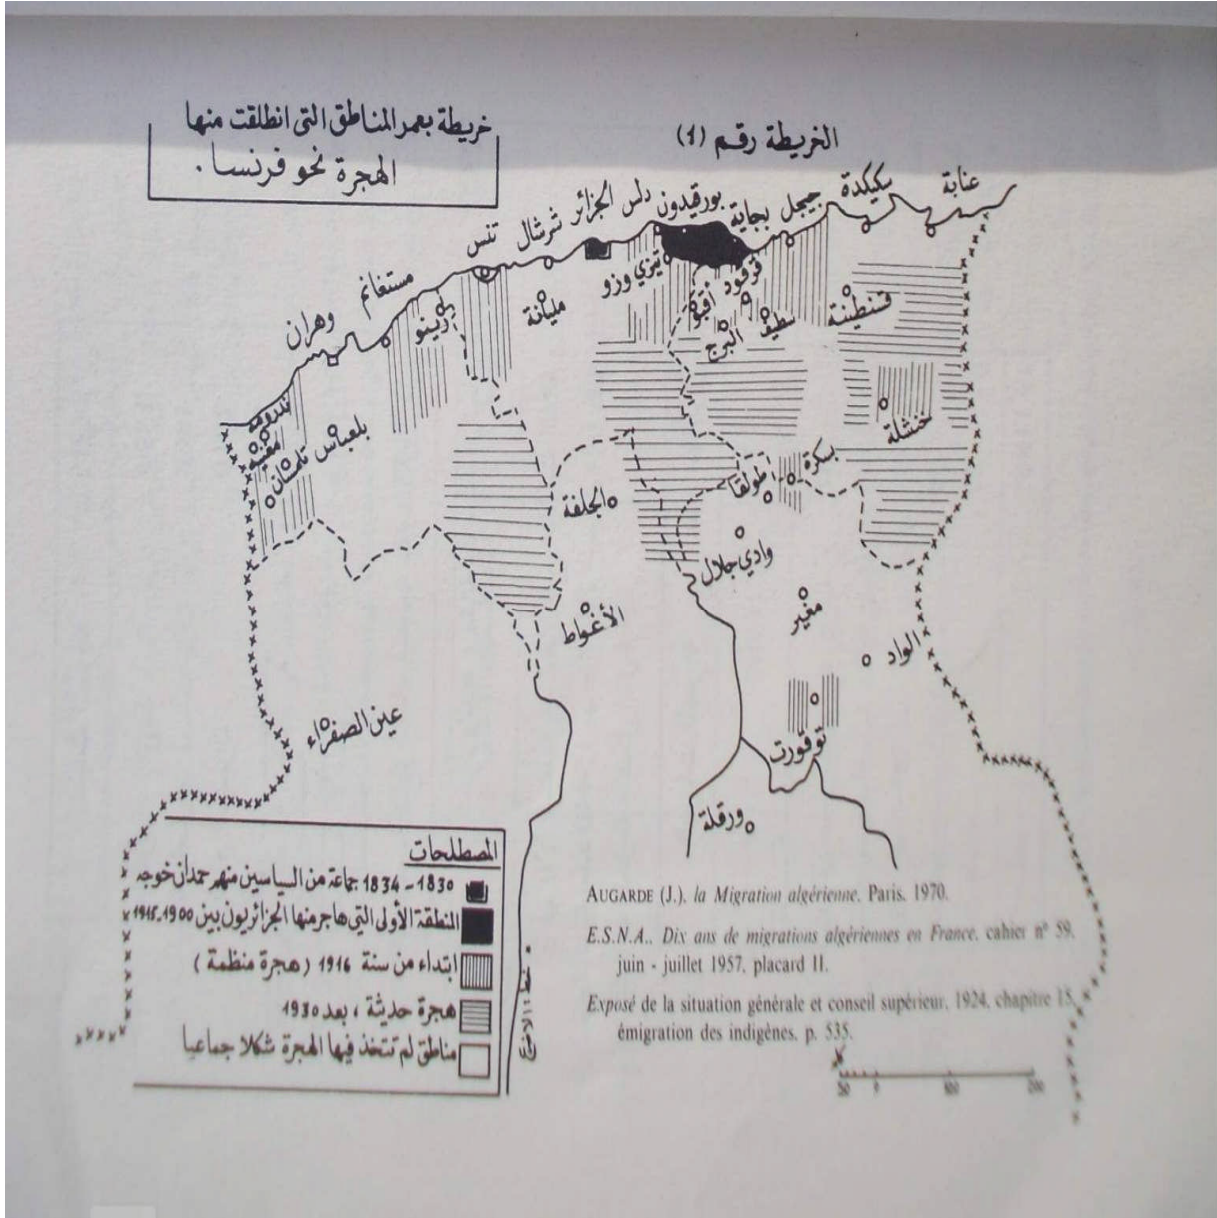 الخريطة رقم (1)
خريطة بعمر المناطق التي انطلقت منها
الهجرة نحو فرنسا.
عنابة
سكيكدة
جيجل
بجاية
بورقيدون
دلس
الجزائر
شرشال
تنس
مستغانم
وهران
تيزي وزو
مليانة
رينو
قرقور
أقبو
البرج
سطيف
قسنطينة
ندرومة
مغنية
تلمسان
بلعباس
خنشلة
بسكرة
طولقا
الجلفة
وادي جلال
مغير
الأغواط
الواد
عين الصفراء
توقورت
ورقلة
المصطلحات
1830 - 1834 جماعة من السياسين منهم حمدان خوجه
المنطقة الأولى التي هاجر منها الجزائريون بين 1900-1915
ابتداء من سنة 1916 (هجرة منظمة)
هجرة حديثة، بعد 1930
مناطق لم تتخذ فيها الهجرة شكلا جماعيا
AUGARDE (J.), la Migration algérienne, Paris, 1970.
E.S.N.A., Dix ans de migrations algériennes en France, cahier n° 59,
juin - juillet 1957, placard II.
Exposé de la situation générale et conseil supérieur, 1924, chapitre 15,
émigration des indigènes, p. 535.
50 0 100 200